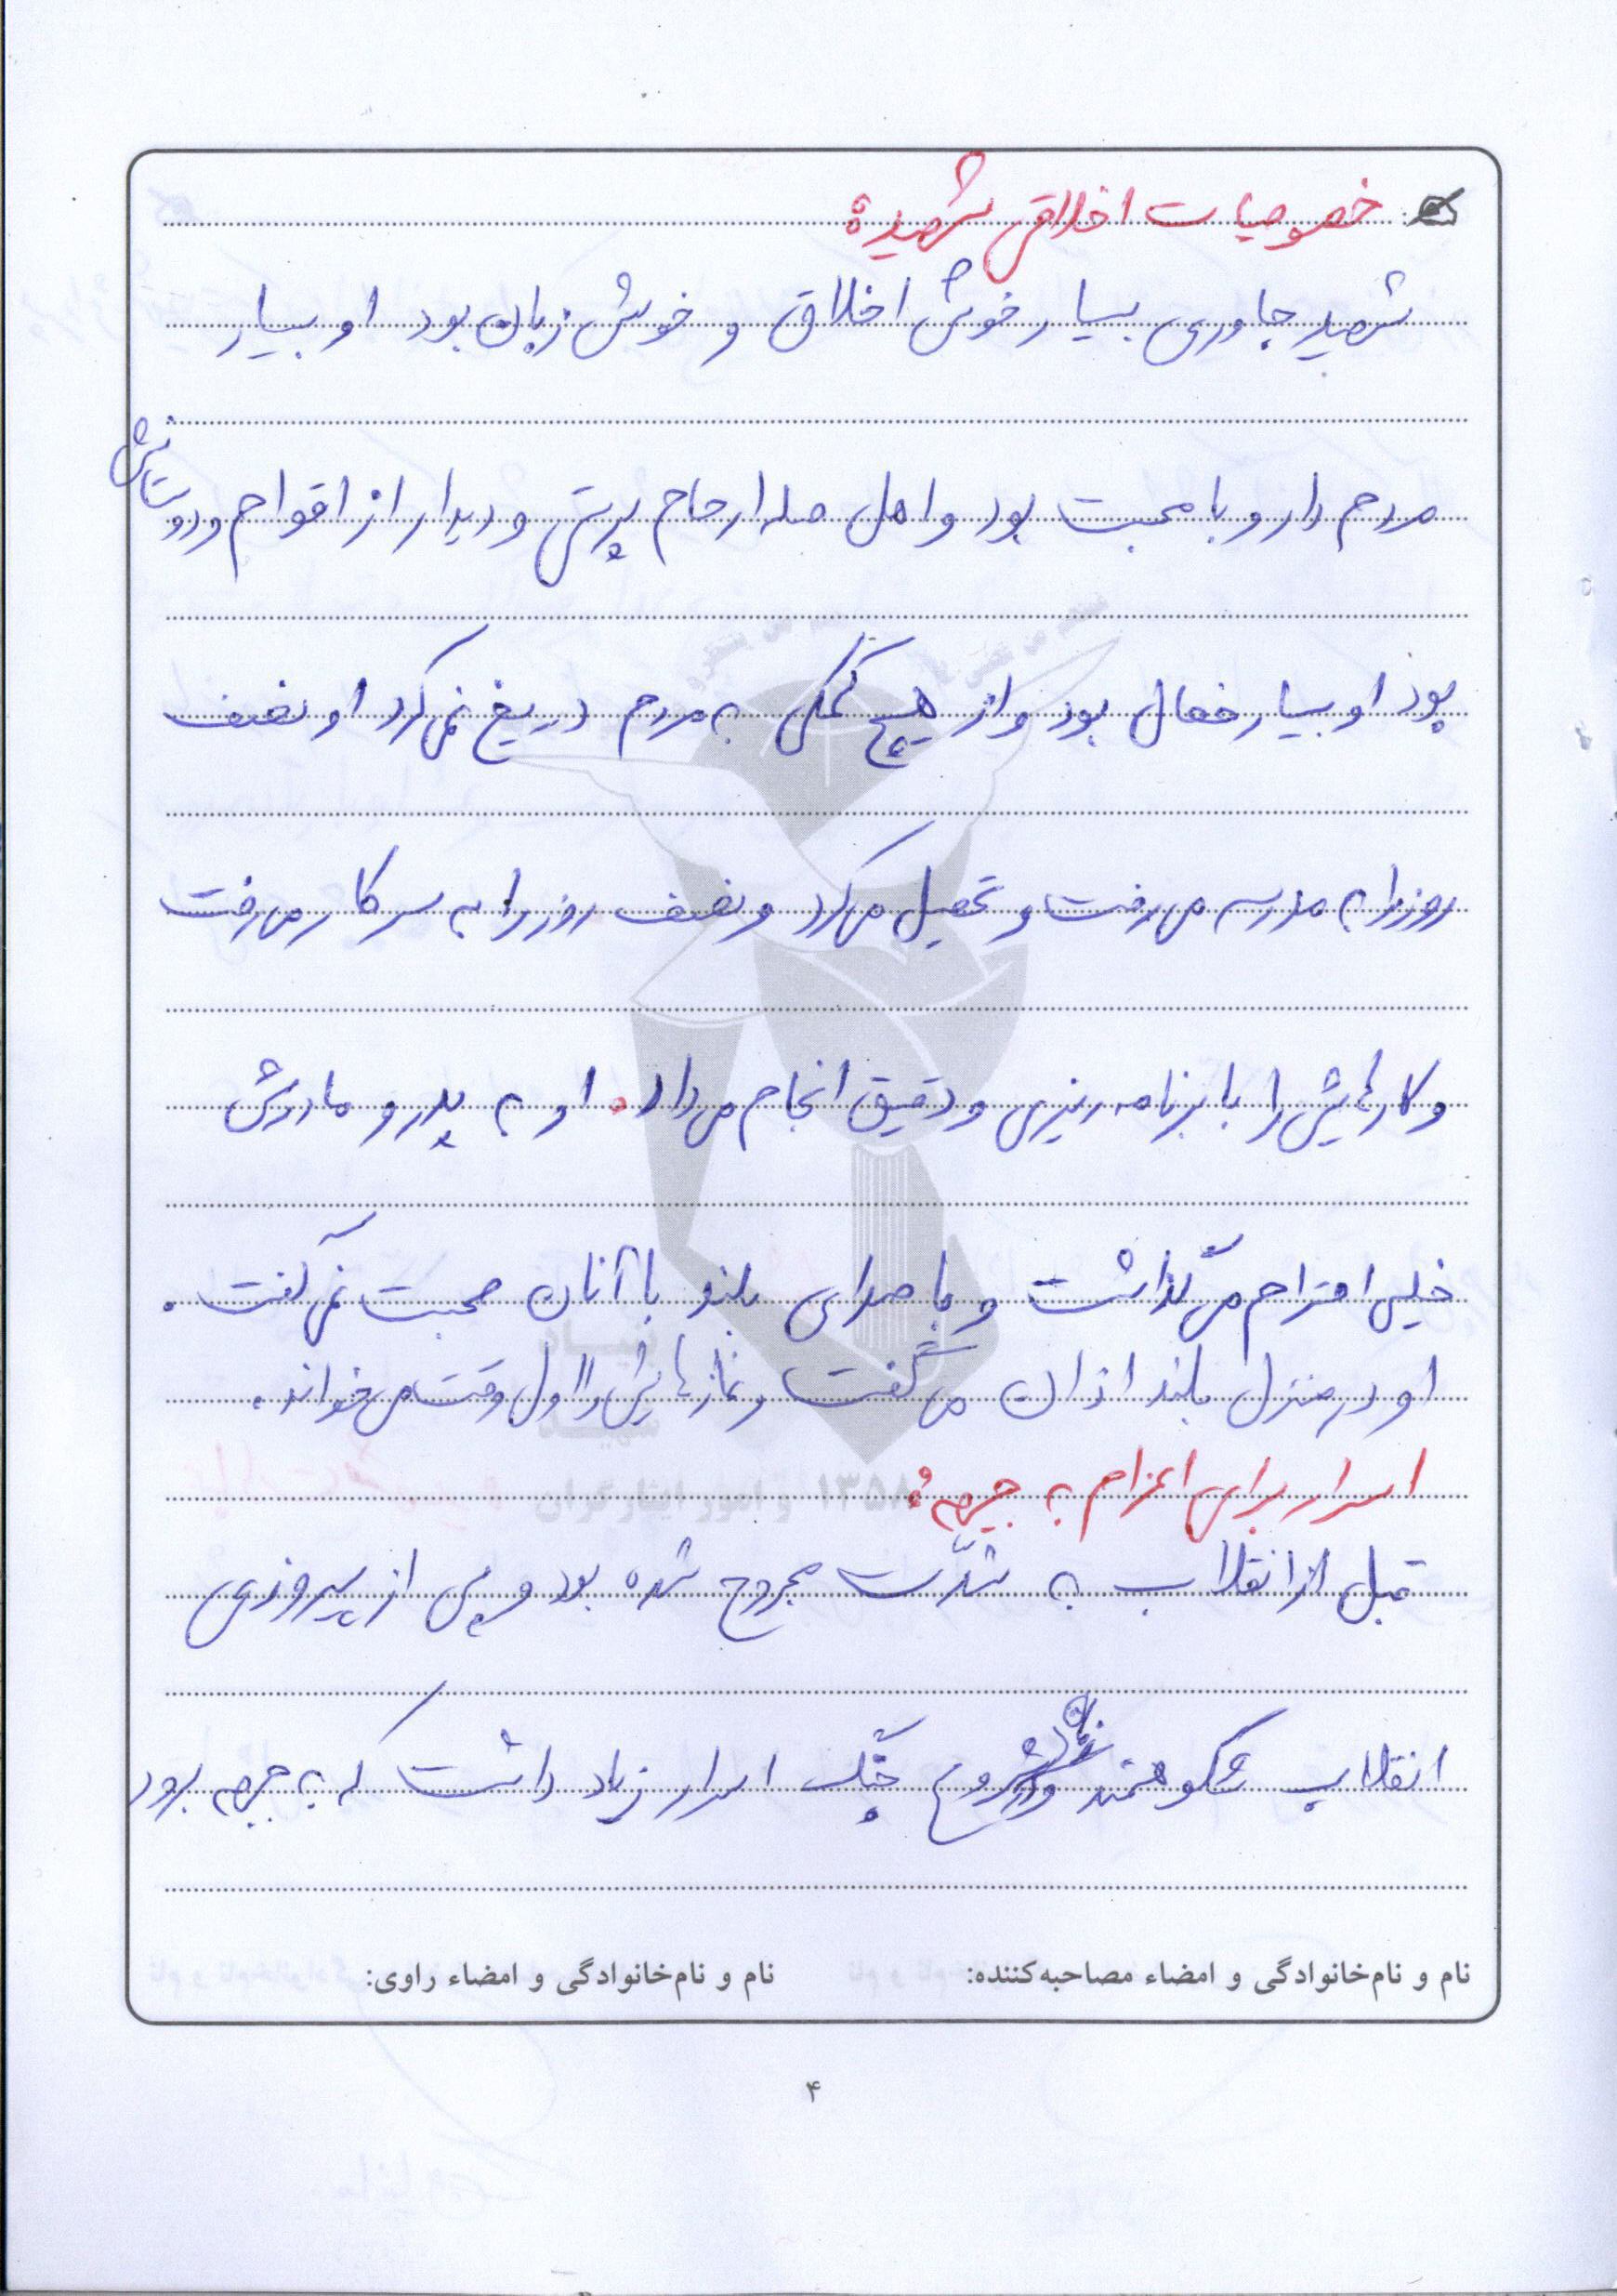 خصوصیات اخلاقی شهید:
شهید جاوری بسیار خوش اخلاق و خوش زبان بود او بسیار
مردم دار و با محبت بود و اهل صله ارحام پرسی و دیدار از اقوام و دوستانش
بود او بسیار فعال بود و از هیچ کمکی به مردم دریغ نمی کرد او نصف
روز را به مدرسه می رفت و تحصیل می کرد و نصف روز را به سر کار می رفت
و کارهایش را با برنامه ریزی و دقیق انجام می داد. او به پدر و مادرش
خیلی احترام می گذاشت و با صدای بلند با آنان صحبت نمی گفت.
او در منزل بلند اذان می گفت و نمازهایش را اول وقت می خواند.
اسرار برای اعزام به جبهه:
قبل از انقلاب به شدّت مجروح شده بود و پس از پیروزی
انقلاب شکوهمند و شروع جنگ اسرار زیاد داشت که به جبهه برود
نام و نام‌خانوادگی و امضاء مصاحبه‌کننده: نام و نام‌خانوادگی و امضاء راوی:
۴